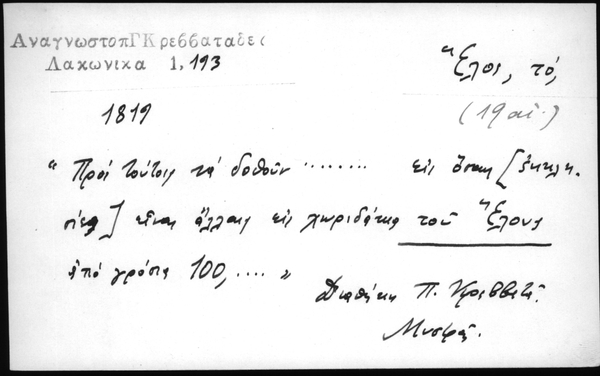 ΑναγνωστοπΓΚρεββαταδες
Λακωνικα 1,193
Ἕλος, τό,
1819
(19 αἰ.)
" Πρός τούτοις νά δοθοῦν ........ εἰς ὅσας [ἐκκλη-
σίες] εἶναι ἄλλαις εἰς χωριδάκια τοῦ Ἕλους
ἀπό γρόσια 100, .... "
Διαθήκη Π. Κρεββατᾶ.
Μυστρᾶς.